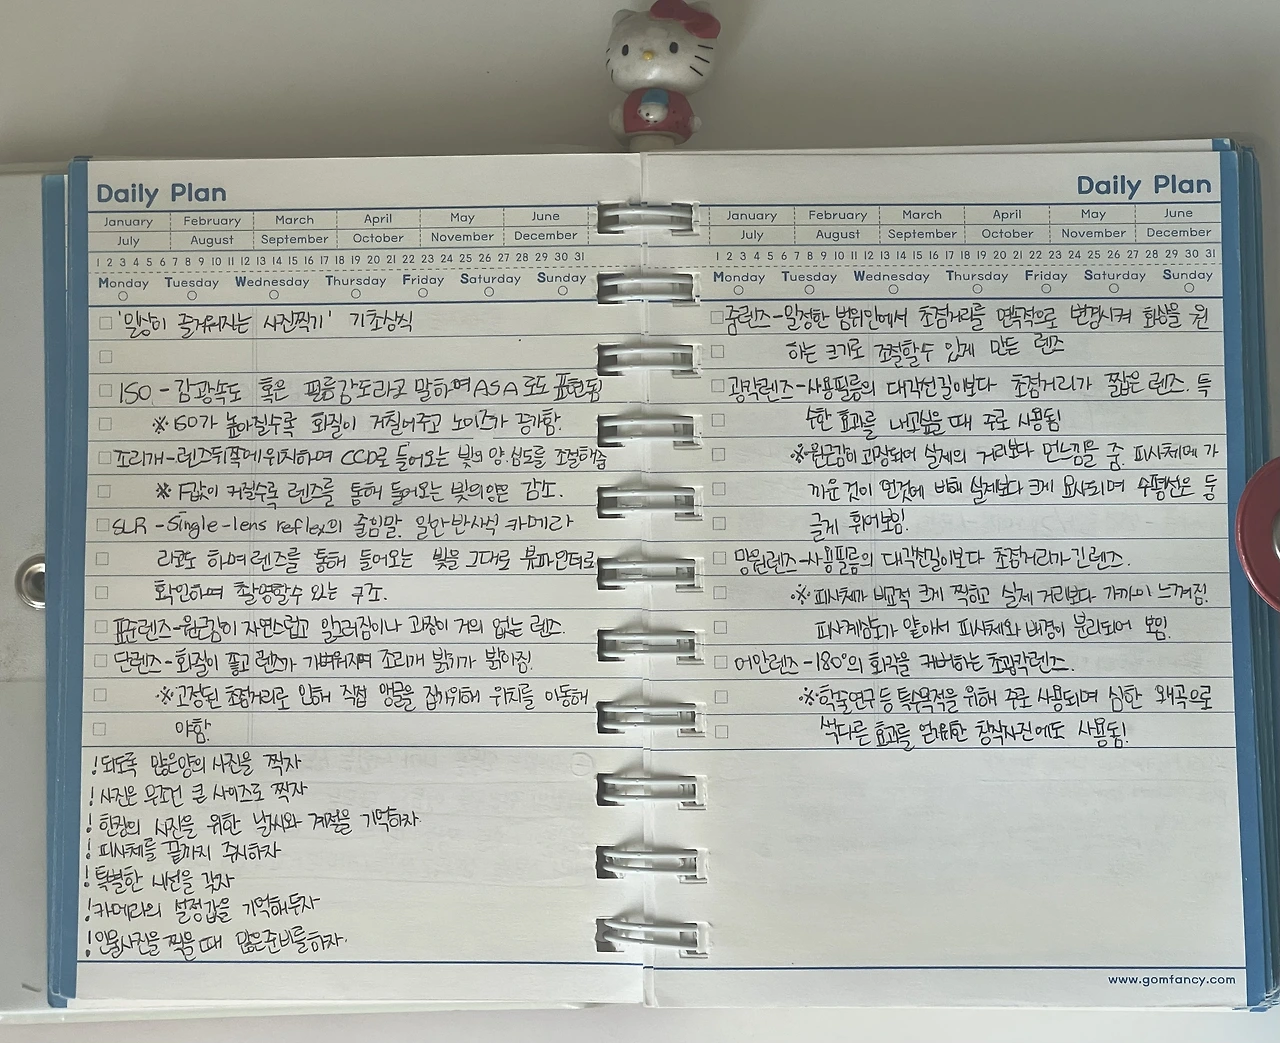 Daily Plan
January February March April May June
July August September October November December
1 2 3 4 5 6 7 8 9 10 11 12 13 14 15 16 17 18 19 20 21 22 23 24 25 26 27 28 29 30 31
Monday Tuesday Wednesday Thursday Friday Saturday Sunday
'일상이 즐거워지는 사진찍기' 기초상식
ISO - 감광속도 혹은 필름감도라고 말하며 ASA로도 표현됨
※ ISO가 높아질수록 화질이 거칠어주고 노이즈가 증가함.
조리개-렌즈뒤쪽에위치하며 CCD로 들어오는 빛의 양.심도를 조절해줌
※ F값이 커질수록 렌즈를 통해 들어오는 빛의양은 감소.
SLR - Single-lens reflex의 줄임말. 일안반사식 카메라
라고도 하며렌즈를 통해 들어오는 빛을 그대로 뷰파인더로
확인하며 촬영할수 있는 구조.
표준렌즈-원근감이 자연스럽고 일그러짐이나 과장이 거의 없는 렌즈.
단렌즈-화질이 좋고 렌즈가 가벼워지며 조리개 밝기가 밝아짐.
※고정된 초점거리로 인해 직접 앵글을 잡기위해 위치를 이동해
야함.
!되도록 많은양의 사진을 찍자
!사진은 무조건 큰 사이즈로 찍자
!한장의 사진을 위한 날씨와 계절을 기억하자.
!피사체를 끝까지 주시하자
!특별한 시선을 갖자
!카메라의 설정값을 기억해두자
!인물사진을 찍을 때 많은준비를하자.
Daily Plan
January February March April May June
July August September October November December
1 2 3 4 5 6 7 8 9 10 11 12 13 14 15 16 17 18 19 20 21 22 23 24 25 26 27 28 29 30 31
Monday Tuesday Wednesday Thursday Friday Saturday Sunday
줌렌즈-일정한 범위안에서 초점거리를 연속적으로 변경시켜 화상을 원
하는 크기로 조절할수 있게 만든 렌즈
광각렌즈-사용필름의 대각선길이보다 초점거리가 짧은 렌즈. 특
수한 효과를 내고싶을 때 주로 사용됨!
※원근감이 과장되어 실제의 거리보다 먼느낌을 줌. 피사체에 가
까운 것이 먼것에 비해 실제보다 크게 묘사되며 수평선은 둥
글게 휘어보임.
망원렌즈-사용필름의 대각선길이보다 초점거리가긴렌즈.
※피사체가 비교적 크게 찍히고 실제 거리보다 가까이 느껴짐.
피사계심도가 얕아서 피사체와 배경이 분리되어 보임.
어안렌즈 -180°의 화각을 커버하는 초광각렌즈.
※학술연구 등 특수목적을 위해 주로 사용되며 심한 왜곡으로
색다른 효과를 얻기위한 창작사진에도 사용됨!
www.gomfancy.com